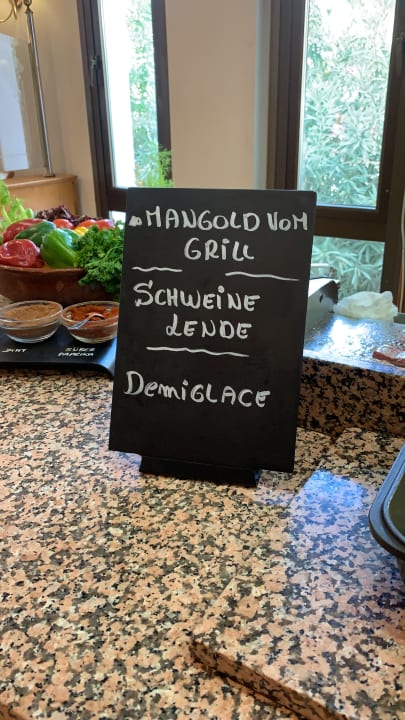 MANGOLD VOM
GRILL
SCHWEINE
LENDE
DemiGLACE
SÜßES
PAPRIKA